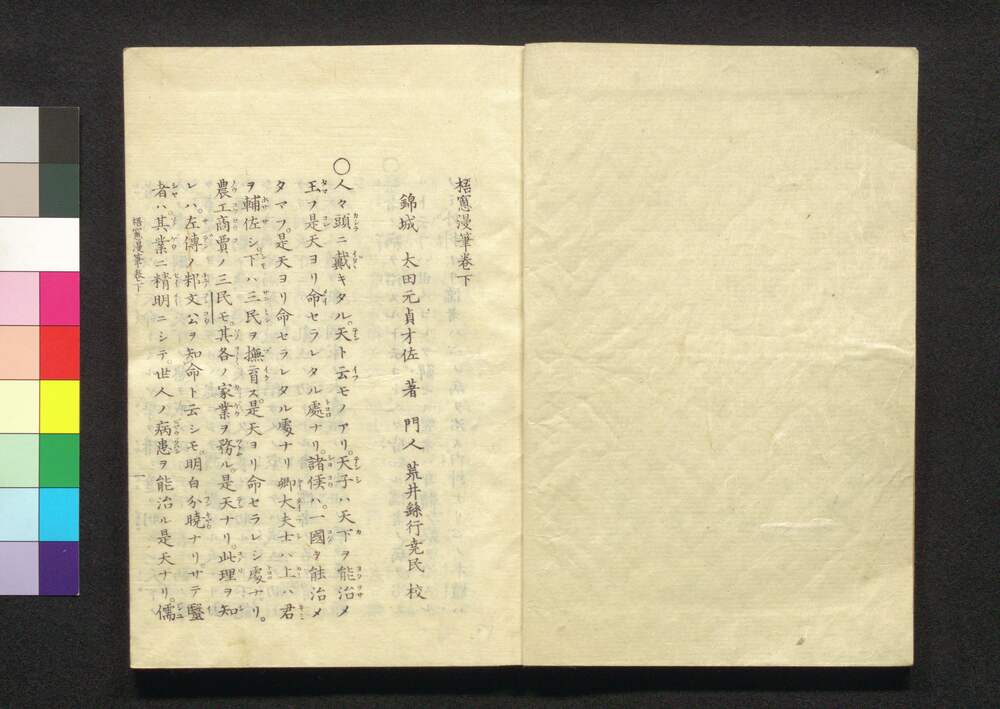 梧窓漫筆卷下
錦城 太田元貞才佐 著 門人 荒井繇行尭民 校
○人々頭ニ戴キタル。天ト云モノアリ。天子ハ天下ヲ能治メ
玉フ是天ヨリ命セラレタル處ナリ。諸侯ハ。一國ヲ能治メ
タマフ。是天ヨリ命セラレタル處ナリ卿大夫士ハ上ハ君
ヲ輔佐シ。下ハ三民ヲ撫育ス。是天ヨリ命セラレシ處ナリ。
農工商賈ノ三民モ。其各ノ家業ヲ務ル。是天ナリ。此理ヲ知
レハ。左傳ノ邾文公ヲ知命ト云シモ。明白分曉ナリ。サテ毉
者ハ。其業ニ精明ニシテ。世人ノ病患ヲ能治ル是天ナリ。儒
梧窓漫筆卷下